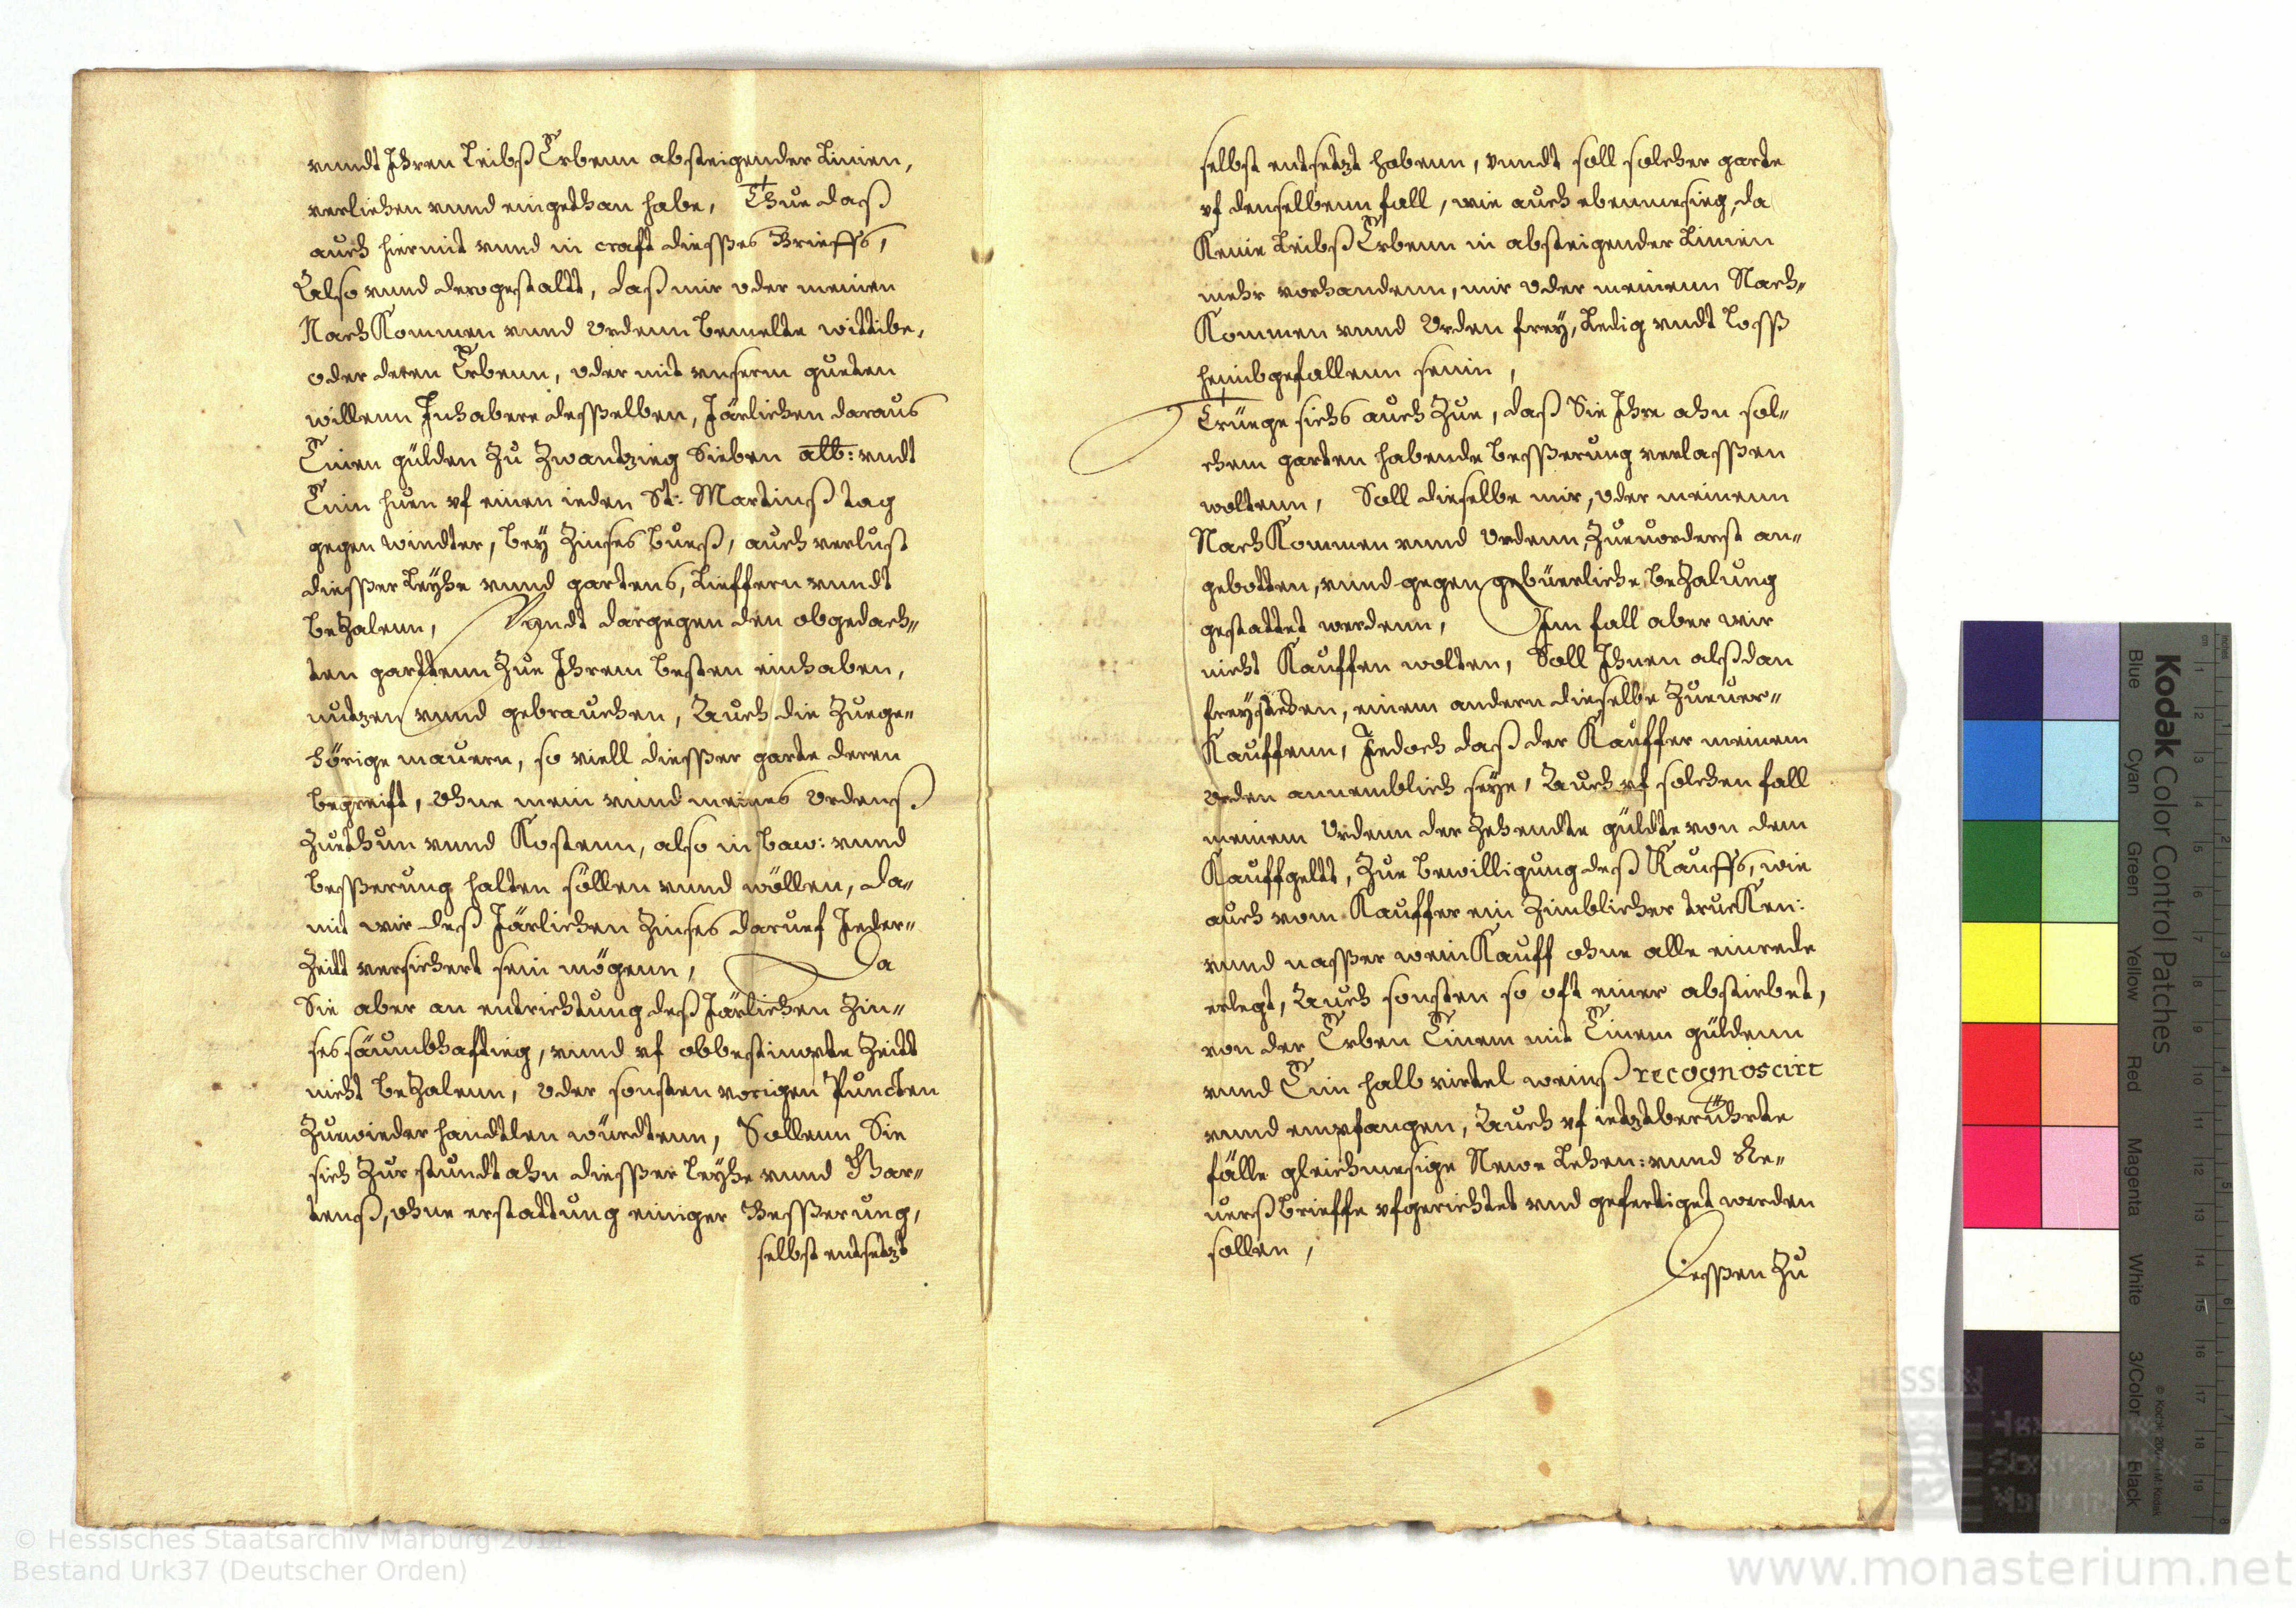 vnndt Ihren Leibß Erbenn absteigender Linien,
verliehen vnnd eingethan habe, Thue daß
auch hiermit vnnd in craft diesses Brieffs,
Also vnnd derogestaltt, daß mir oder meinen
NachKommen vnnd Ordenn bemelte wittibe,
oder deren Erbenn, oder mit vnserm gueten
willenn Inhabere desselben, Järlichen daraus
Einen gülden Zu Zwantzieg Sieben alb: vndt
Ein huen vf einen ieden St: Martinß tag
gegen windter, bey Zinses bueß, auch verlust
diesser Leyhe vnnd gartens, Lieffern vnndt
beZalenn, Vnndt dargegen den obgedach„
ten garttenn Zue Ihrem besten einhaben,
nutzen vnnd gebrauchen, Auch die Zuege„
hörige mauern, so viell diesser garte deren
begreift, ohne mein vnnd meines Ordenß
Zuethun vnnd Kostenn, also in baw: vnnd
besserung halten söllen vnnd wöllen, da„
mit wir deß Järlichen Zinses daruef Ieder„
Zeitt versichert sein mögenn, Da
Sie aber an entrichtung deß Järlichen Zin„
ses säumbhaftieg, vnnd vf obbestimpte Zeitt
nicht beZalenn, oder sonsten vorigen Puncten
Zuewieder handtlen würdtenn, Sollenn Sie
sich Zur stundt ahn diesser Leyhe vnnd Gar„
tenß, ohne erstattung einiger Besserung,
selbst entsetzt
selbst entsetzt habenn, vnndt soll solcher garte
vf denselbenn fall, wie auch ebenmesieg, da
Keine Leibß Erbenn in absteigender Linien
mehr vorhandenn, mir oder meinenn Nach„
Kommen vnnd Orden frey, Ledig vndt Loss
heimbgefallenn seinn,
Trüege sichs auch Zue, daß Sie Ihre ahn sol„
chem garten habende besserung verlassen
woltenn, Soll dieselbe mir, oder meinenn
NachKommen vnnd Ordenn, Zueuorderst an„
gebotten, vnnd gegen gebüerliche beZalung
gestattet werdenn, Im fall aber wir
nicht Kauffen wolten, Soll Ihnen alßdan
freystehen, einem andern dieselbe Zueuer„
Kauffenn, Jedoch daß der Kauffer meinem
Orden annemblich seye, Auch vf solchen fall
meinem Ordenn der Zehendte güldte von dem
Kauffgeltt, Zue bewilligung deß Kauffs, wie
auch vom Kauffer ein Zimblicher trucKen:
vnnd nasser weinKauff ohne alle einrede
erlegt, Auch sonsten so oft einer abstirbet,
von der Erben Einem mit Einem güldenn
vnnd Ein halb virtel weinß recognoscirt
vnnd empfangen, Auch vf ietztberührte
fälle gleichmesige Newe Lehen: vnnd Re„
uerß brieffe vfgerichtet vnd gefertiget werden
sollen,
Dessen Zu
Kodak Color Control Patches
Blue
Cyan
Green
Yellow
Red
Magenta
White
3/Color
Black
HESSEN
© Hessisches Staatsarchiv Marburg 2011
Bestand Urk37 (Deutscher Orden)
www.monasterium.net